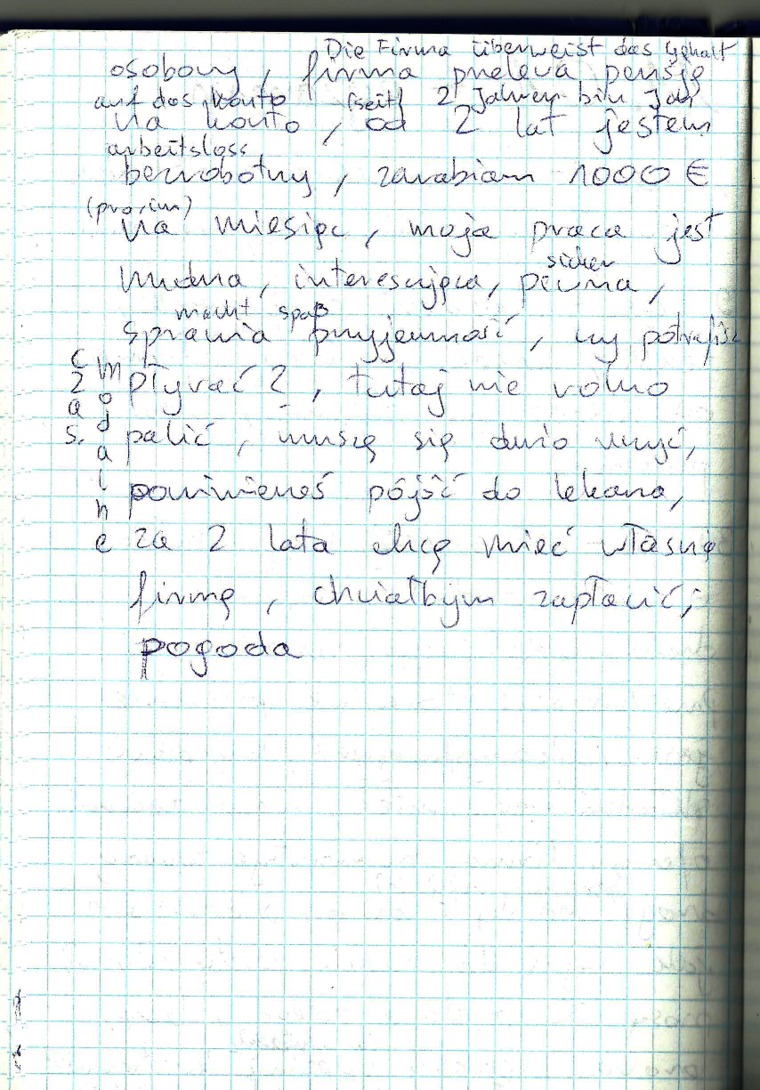 Die Firma überweist das Gehalt
osobowy, firma przelewa pensję
auf das Konto (seit) 2 Jahren bin
na konto, od 2 lat jestem
arbeitsloss
bezrobotny, zarabiam 1000 €
(pro, im)
na miesiąc, moja praca jest
sicher
nudna, interesująca, pewna,
macht spaß
sprawia przyjemność, czy potrafisz
pływać?, tutaj nie wolno
palić, muszę się dużo uczyć,
powinieneś pójść do lekarza,
za 2 lata chcę mieć własną
firmę, chciałbym zapłacić,
pogoda
czas.
modalne